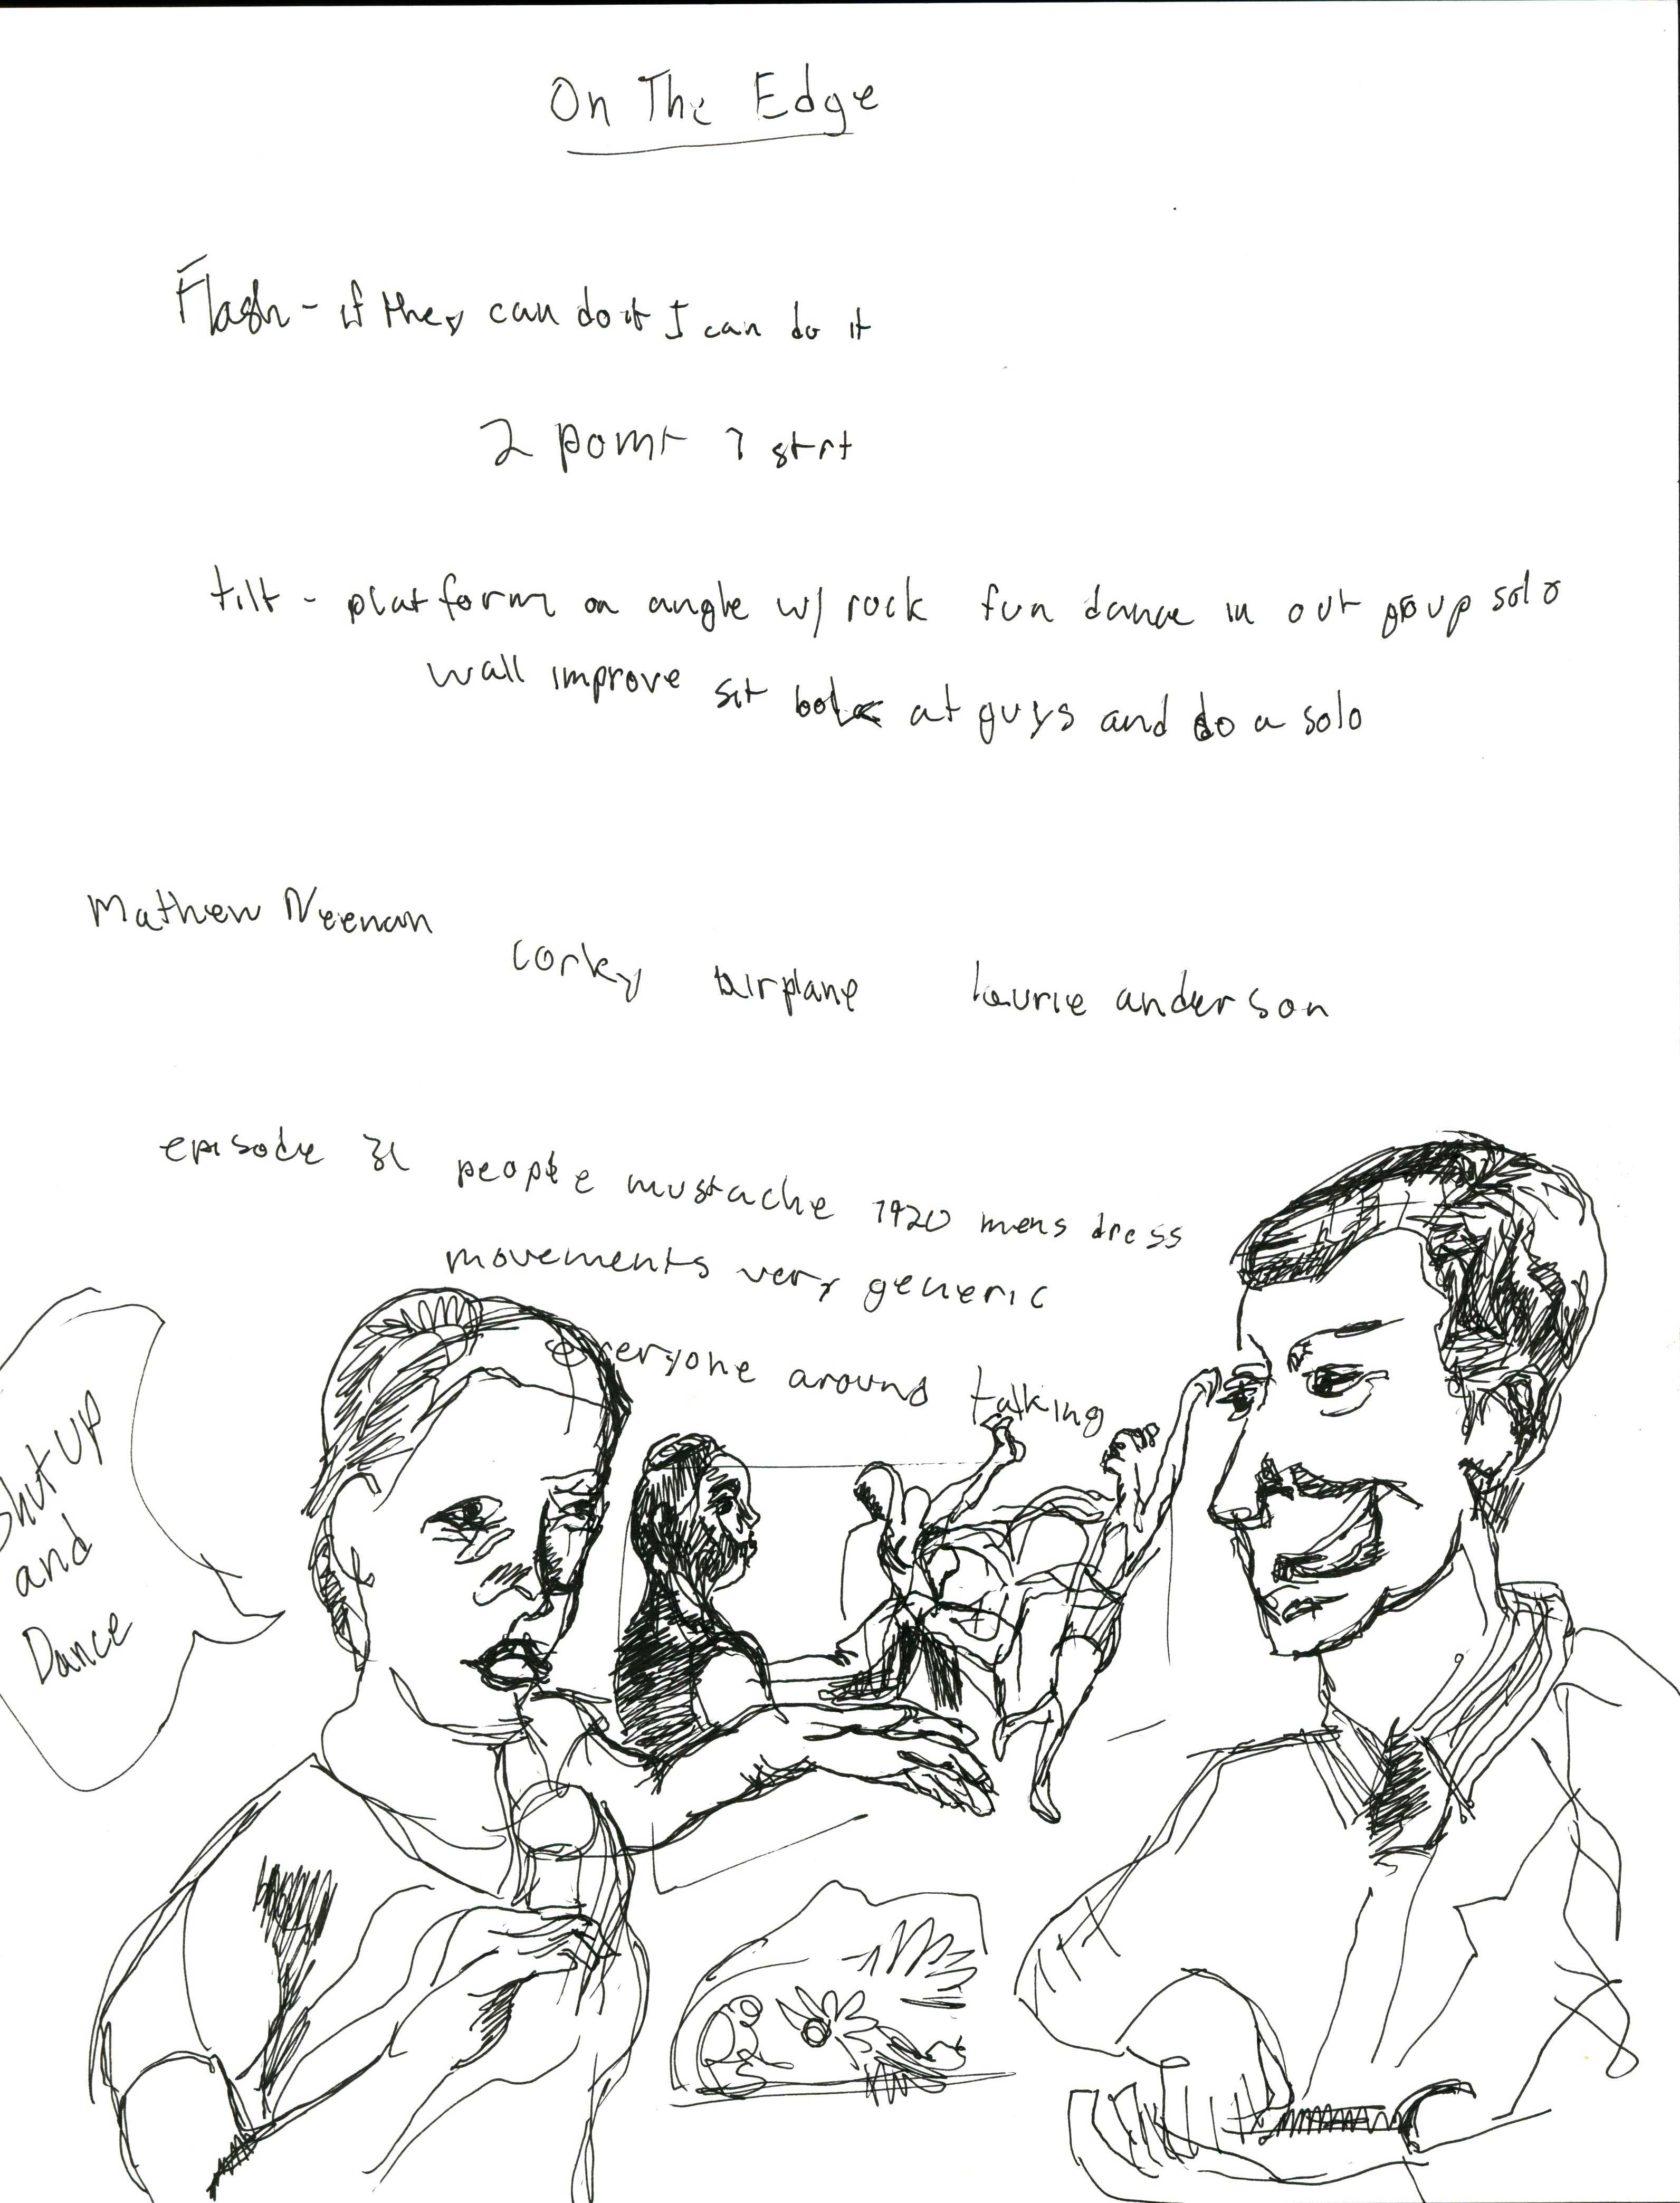 On The Edge
Flash - if they can do it I can do it
2 point 7 strt
tilt - platform on angle w/ rock fun dance in out group solo
wall improve sit look at guys and do a solo
Mathew Neenan
corky airplane laurie anderson
episode 31 people mustache 1920 mens dress
movements very generic
everyone around talking
Shut up
and
Dance